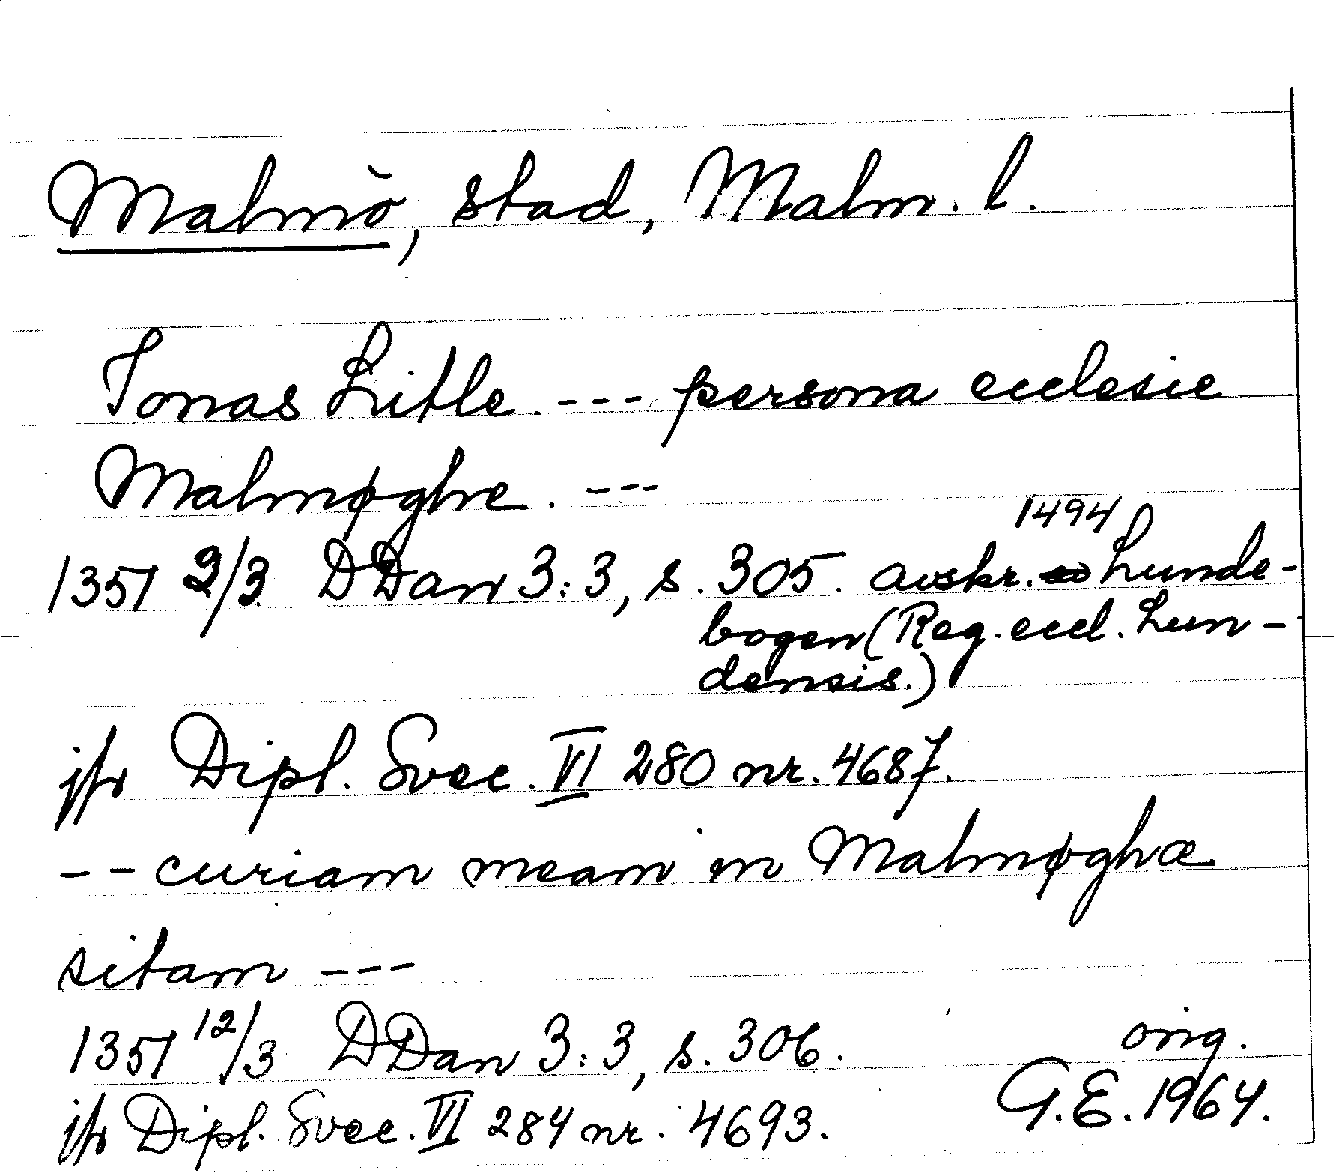 Malmö, stad, Malm. l.
Jonas Litle. --- persona ecclesie
Malmøghe. ---
1494
1351 2/3 DDan 3:3, s. 305. avskr. Lunde-
bogen (Reg. eccl. Lun-
densis.)
jfr Dipl. Svec. VI 280 nr. 4687.
-- curiam meam in Malmøghæ
sitam ---
1351 12/3 DDan 3:3, s. 306. orig.
jfr Dipl. Svec. VI 284 nr. 4693. G.E. 1964.